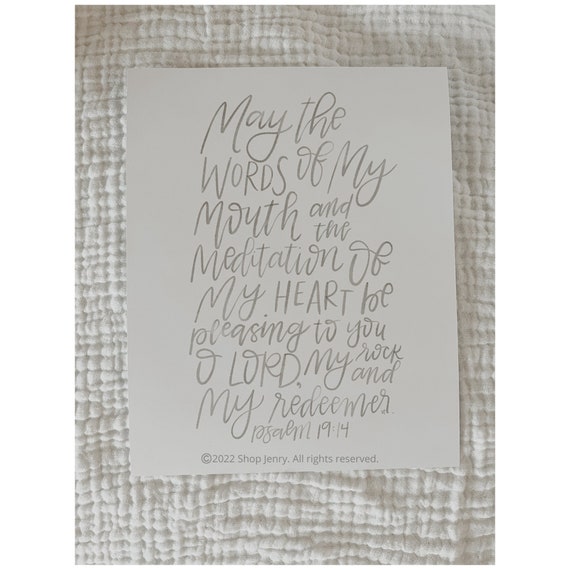 May the
WORDS of My
Mouth and
the
Meditation Of
My HEART be
pleasing to you
O LORD, My rock
and
My redeemer.
psalm 19:14
©2022 Shop Jenry. All rights reserved.